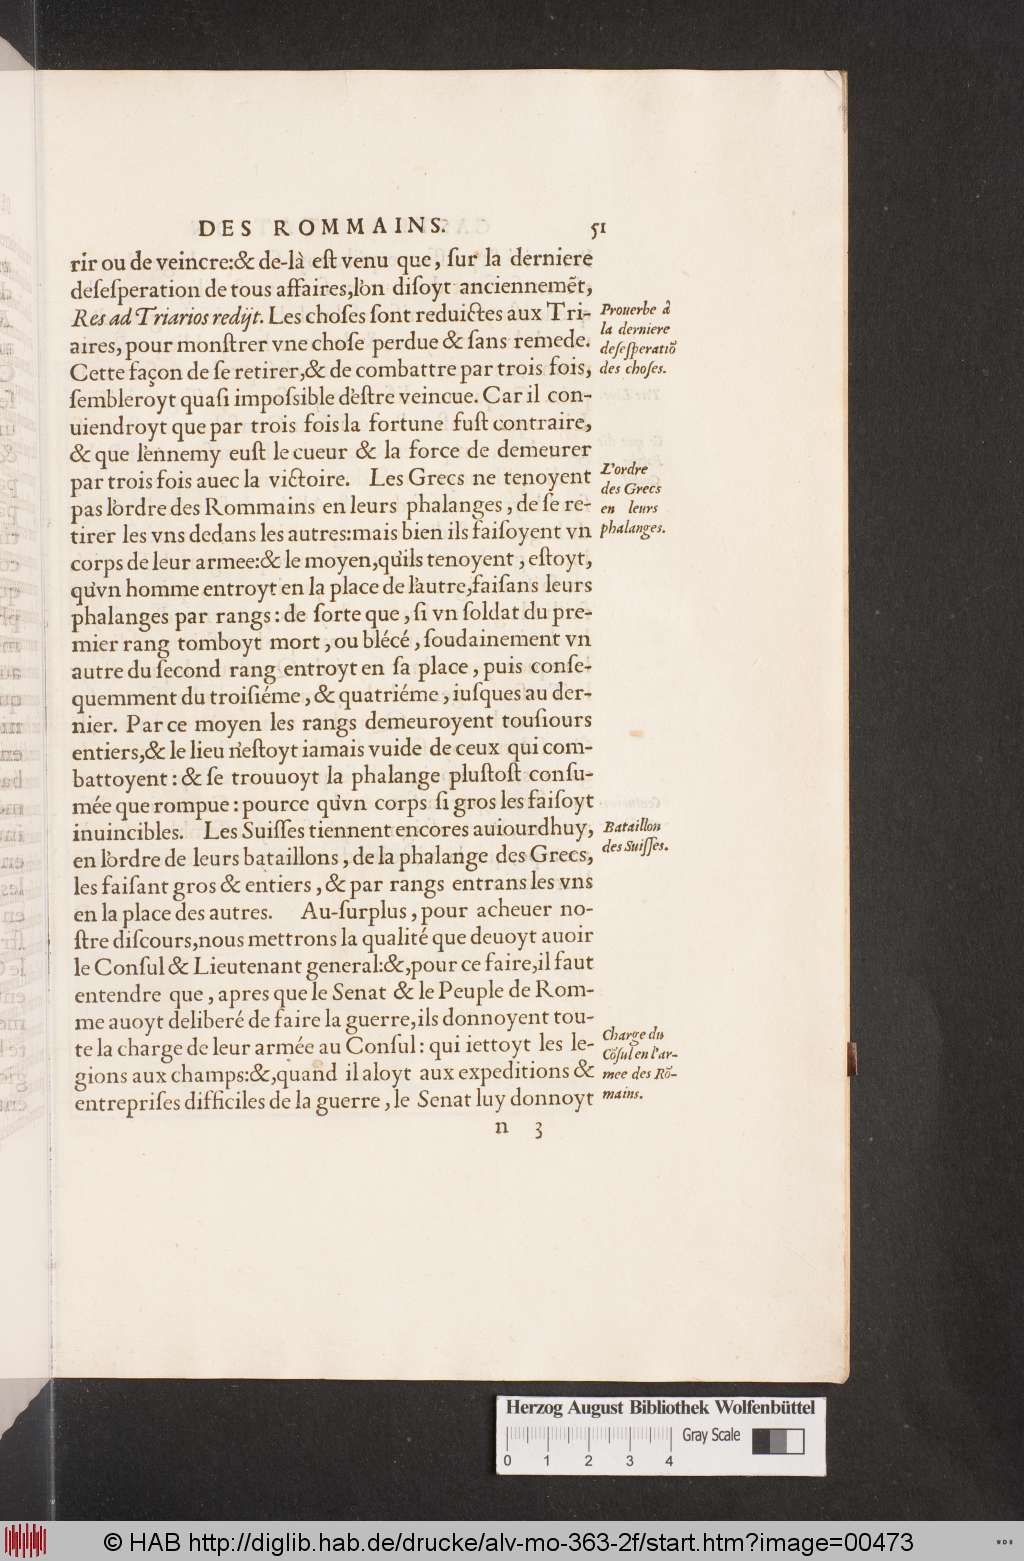 DES ROMMAINS. 51
rir ou de veincre:& de-là eſt venu que, ſur la derniere
deſeſperation de tous affaires,lòn diſoyt anciennemẽt,
Res ad Triarios redijt. Les choſes ſont reduictes aux Tri-
aires, pour monſtrer vne choſe perdue & ſans remede.
Cette façon de ſe retirer,& de combattre par trois fois,
ſembleroyt quaſi impoſsible dèſtre veincue. Car il con-
uiendroyt que par trois fois la fortune fuſt contraire,
& que lènnemy euſt le cueur & la force de demeurer
par trois fois auec la victoire. Les Grecs ne tenoyent
pas lòrdre des Rommains en leurs phalanges, de ſe re-
tirer les vns dedans les autres:mais bien ils faiſoyent vn
corps de leur armee:& le moyen,quìls tenoyent, eſtoyt,
qu'vn homme entroyt en la place de làutre,faiſans leurs
phalanges par rangs: de ſorte que, ſi vn ſoldat du pre-
mier rang tomboyt mort, ou blécé, ſoudainement vn
autre du ſecond rang entroyt en ſa place, puis conſe-
quemment du troiſiéme, & quatriéme, iuſques au der-
nier. Par ce moyen les rangs demeuroyent touſiours
entiers,& le lieu n'eſtoyt iamais vuide de ceux qui com-
battoyent: & ſe trouuoyt la phalange pluſtoſt conſu-
mée que rompue: pource qu'vn corps ſi gros les faiſoyt
inuincibles. Les Suiſſes tiennent encores auiourdhuy,
en lòrdre de leurs bataillons, de la phalange des Grecs,
les faiſant gros & entiers, & par rangs entrans les vns
en la place des autres. Au-ſurplus, pour acheuer no-
ſtre diſcours,nous mettrons la qualité que deuoyt auoir
le Conſul & Lieutenant general:&,pour ce faire,il faut
entendre que, apres que le Senat & le Peuple de Rom-
me auoyt deliberé de faire la guerre,ils donnoyent tou-
te la charge de leur armée au Conſul: qui iettoyt les le-
gions aux champs:&,quand il aloyt aux expeditions &
entrepriſes difficiles de la guerre, le Senat luy donnoyt
n 3
Prouerbe à
la derniere
deſeſperatiõ
des choſes.
L'ordre
des Grecs
en leurs
phalanges.
Bataillon
des Suiſſes.
Charge du
Cõſul en l'ar-
mee des Rõ-
mains.
Herzog August Bibliothek Wolfenbüttel
Gray Scale
0 1 2 3 4
© HAB http://diglib.hab.de/drucke/alv-mo-363-2f/start.htm?image=00473